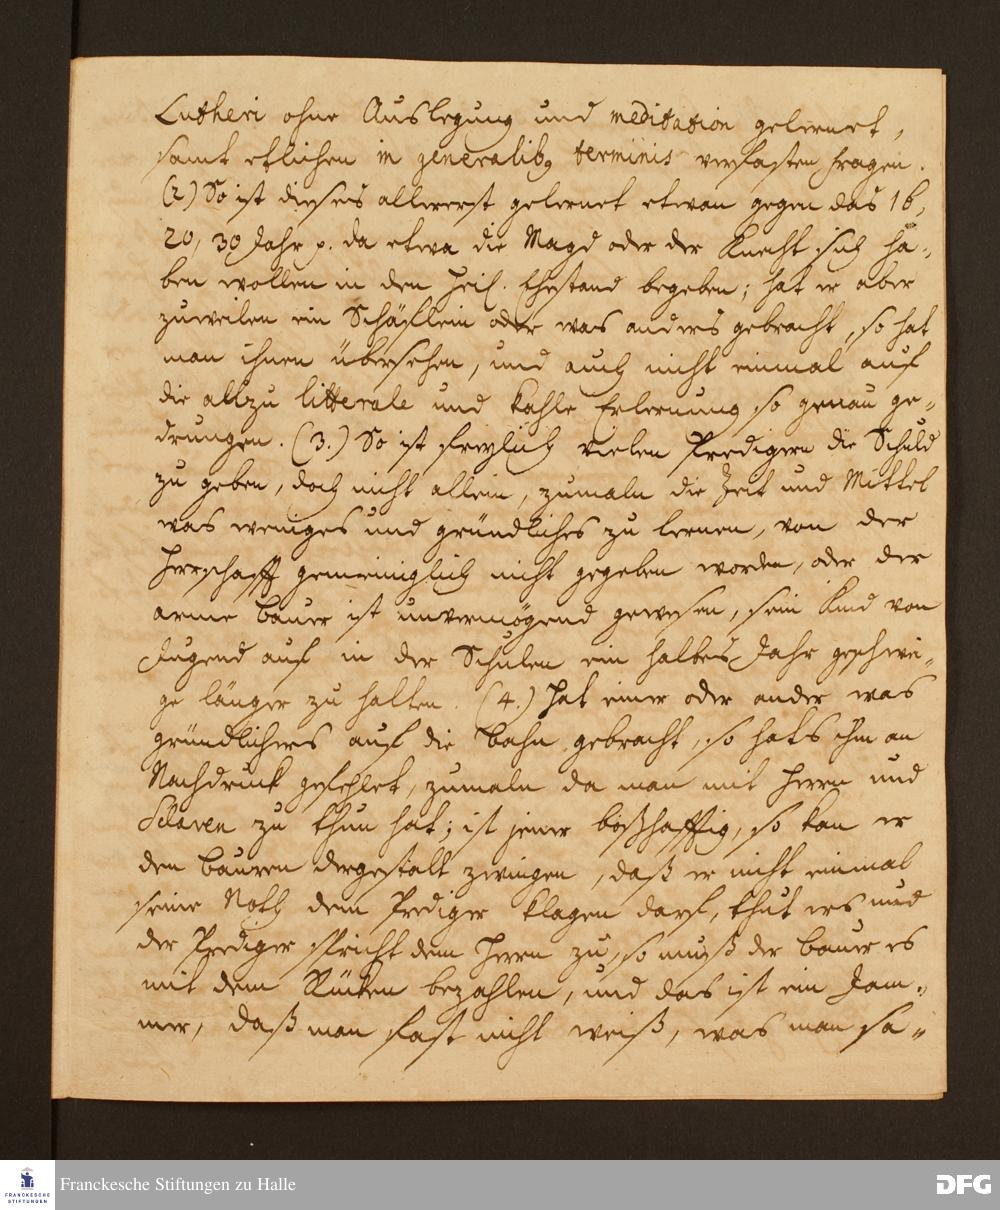 Lutheri ohne Auslegung und meditation gelernet,
samt etlichen in generalibg terminis verfasten fragen.
(2.) So ist dieses allererst gelernet etwan gegen das 16,
20, 30 Jahr p. da etwa die Magd oder der Knecht sich ha-
ben wollen in den Heil. Ehestand begeben; hat er aber
zuweilen ein Schäflein oder was anders gebracht, so hat
man ihnen übersehen, und auch nicht einmal auf
die allzu litterale und kahle Erlernung so genau ge-
drungen. (3.) So ist freylich vielen Predigern die Schuld
zu geben, doch nicht allein, zumaln die Zeit und Mittel
was weniges und gründliches zu lernen, von der
Herrschafft gemeiniglich nicht gegeben worden, oder der
arme Bauer ist unvermögend gewesen, sein Kind von
Jugend auf in der Schulen ein halbes Jahr geschwei-
ge länger zu halten. (4.) Hat einer oder ander was
gründlichers auf die Bahn gebracht, so hats ihm an
Nachdruck gefehlet, zumaln da man mit Herrn und
Sclaven zu thun hat; ist jener boßhafftig, so kan er
den Bauren dergestalt zwingen, daß er nicht einmal
seine Noth dem Prediger klagen darf, thut ers und
der Prediger spricht dem Herrn zu, so muß der Bauer es
mit dem Rücken bezahlen, und das ist ein Jam-
mer, daß man fast nicht weiß, was man sa-
FRANCKESCHE
STIFTUNGEN
Franckesche Stiftungen zu Halle
DFG